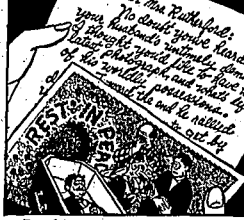 Mrs. Rutherford:
No doubt you've heard
your husband's untimely
thought you'd like to have
last photograph, and what's
of his worldly possessions.
and he rallied
to get by
REST IN PEA